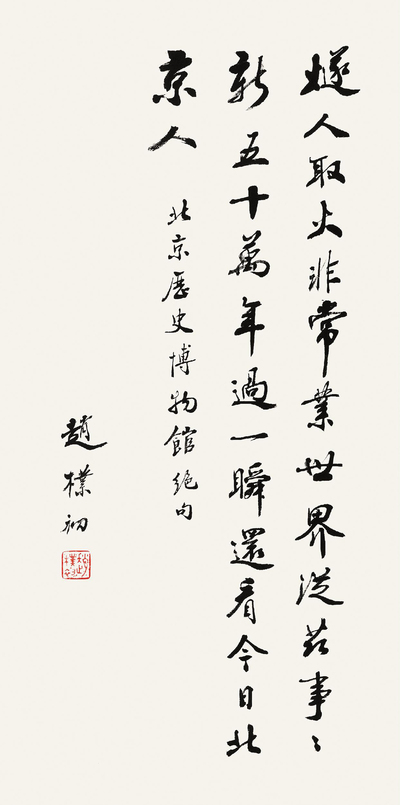 燧人取火非常業世界從玆事〻
新五十萬年過一瞬還看今日北
京人
北京歷史博物館絕句
趙樸初